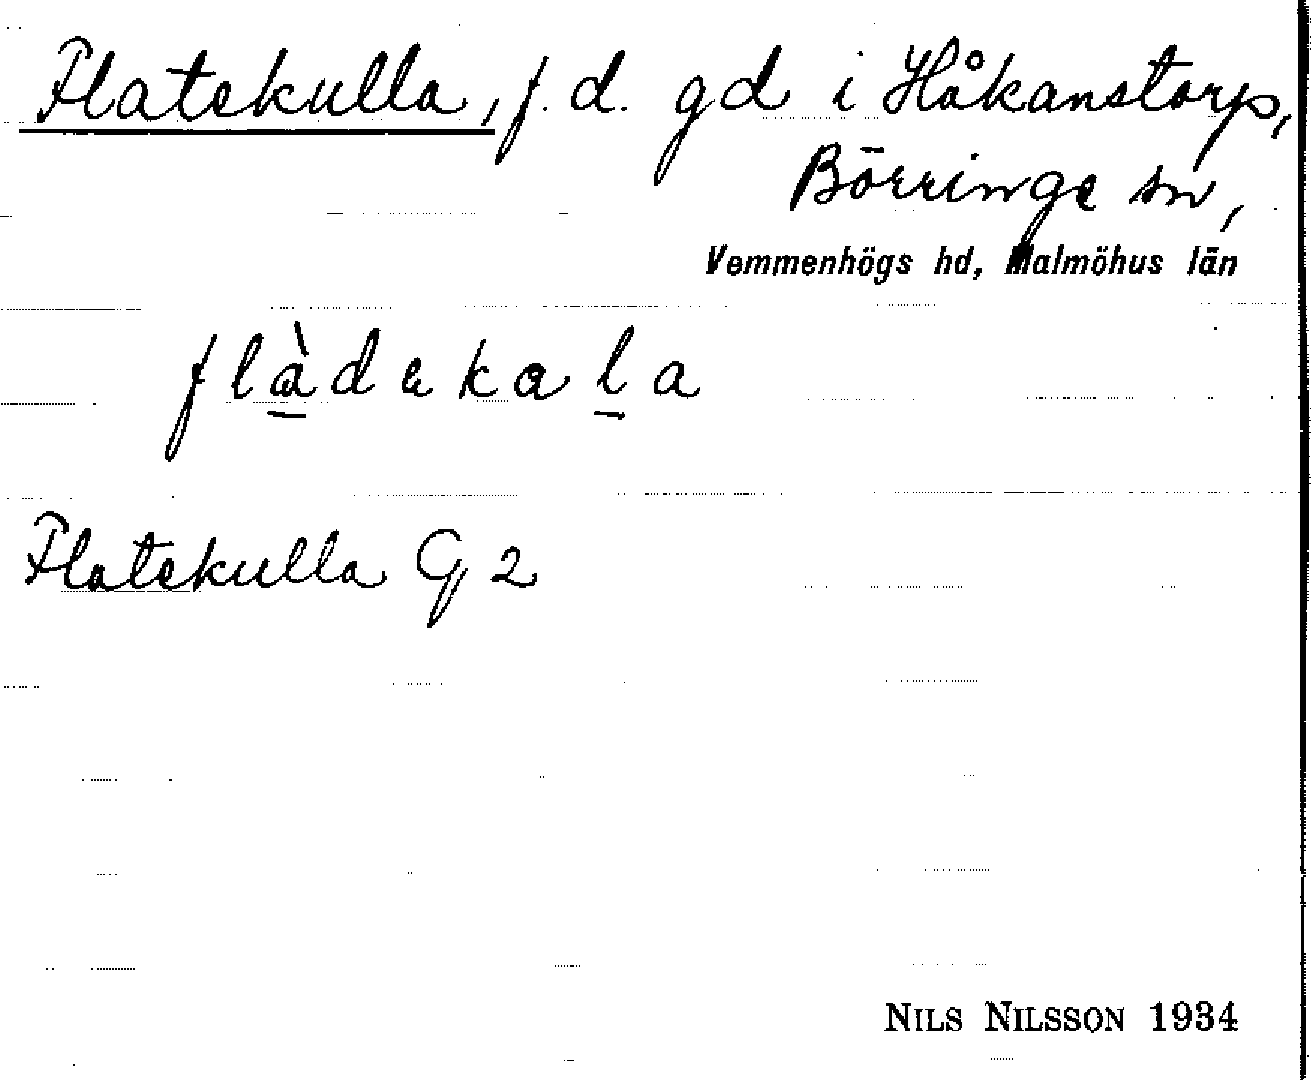 Flatekulla, f.d. gd i Håkanstorp,
Börringe sn,
Vemmenhögs hd, Malmöhus län
flàdekala
Flatekulla G 2
NILS NILSSON 1934